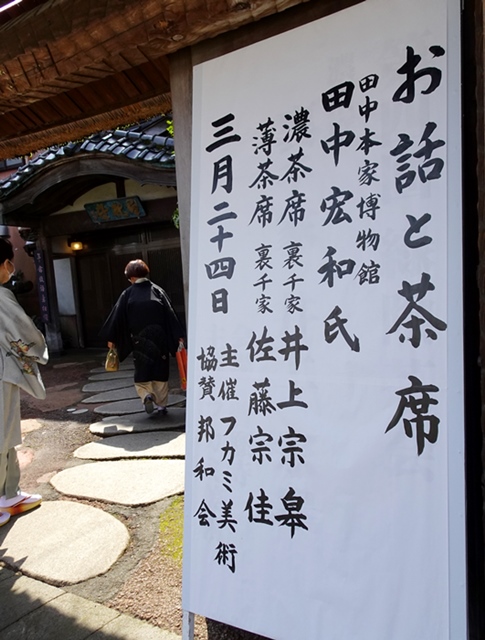 お話と茶席
田中本家博物館
田中宏和氏
濃茶席 裏千家 井上宗皐
薄茶席 裏千家 佐藤宗佳
三月二十四日
主催 フカミ美術
協賛 邦和会